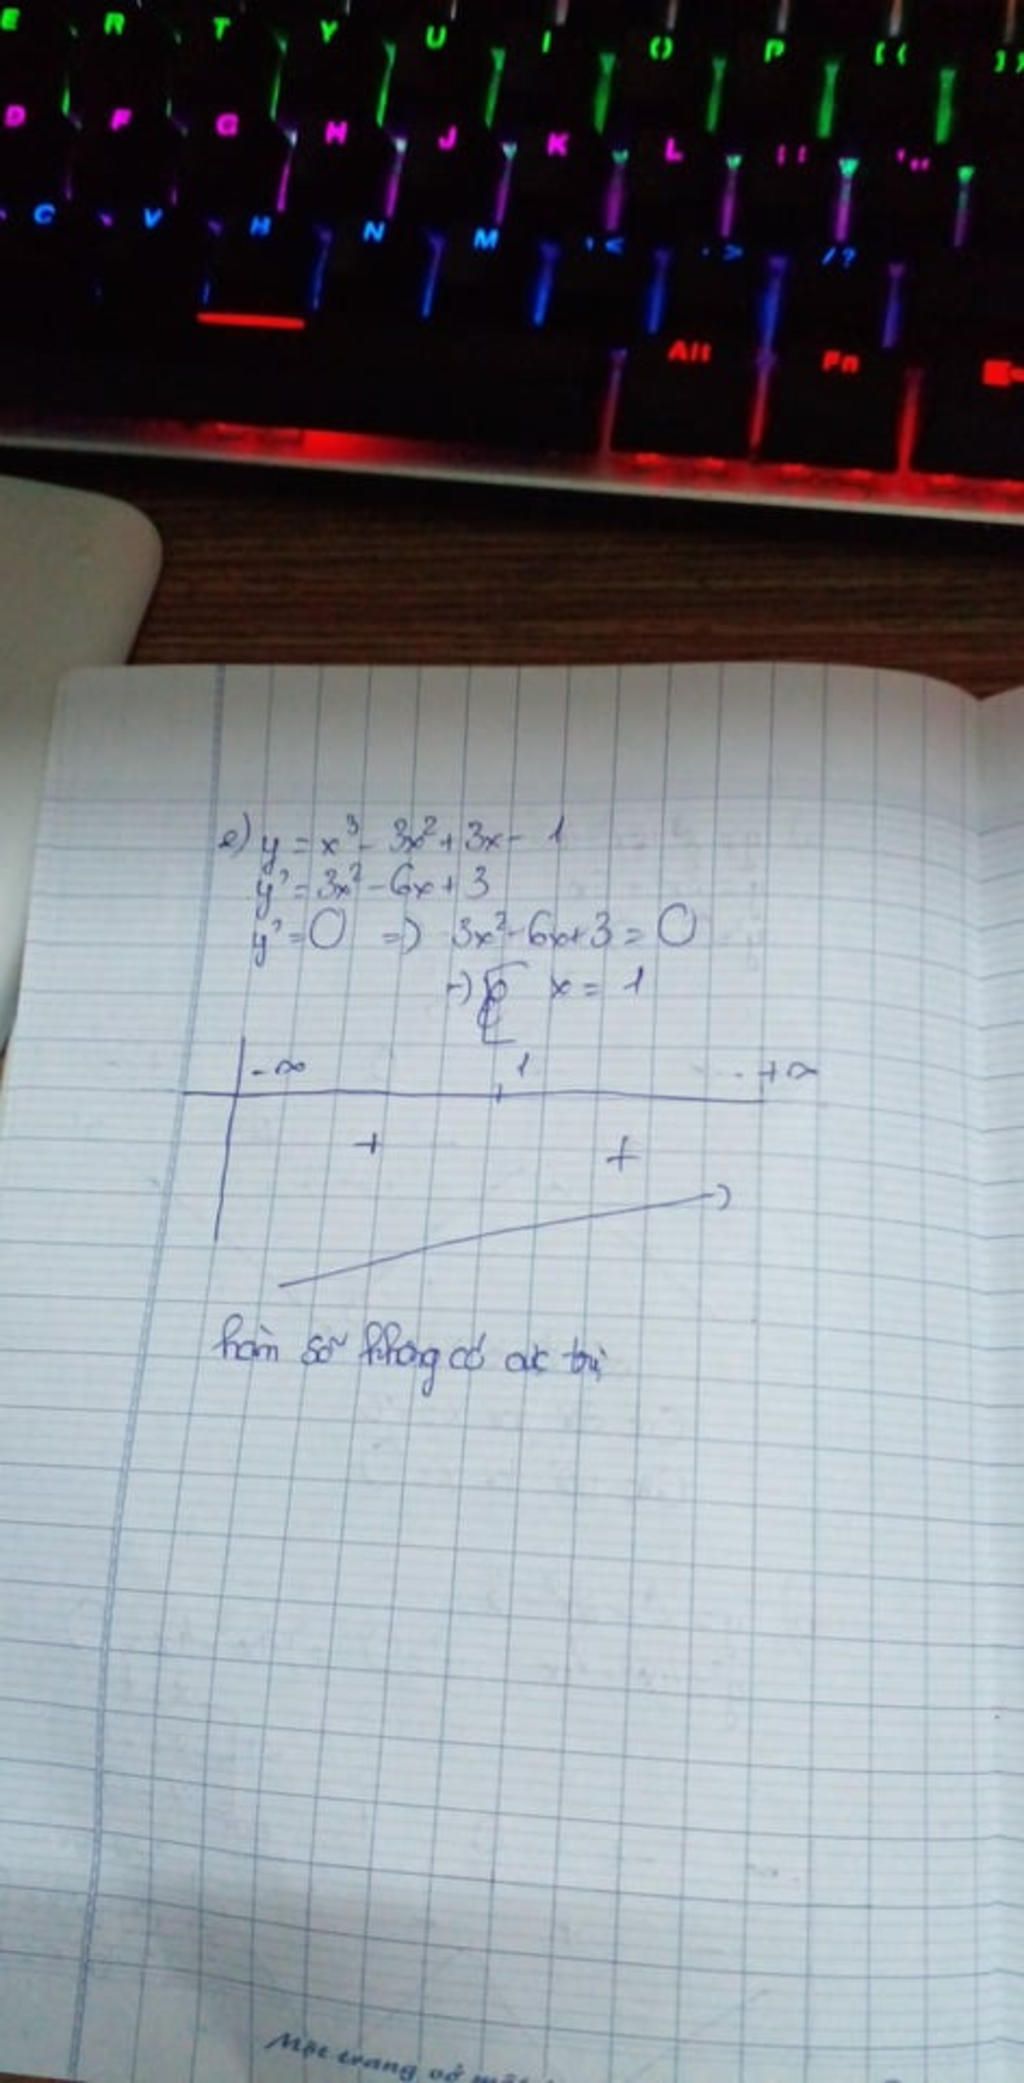 E R T Y U I O P [{ ]}
D F G H J K L ;: '"
C V B N M ,< .> /?
Alt Fn
e) y = x³ - 3x² + 3x - 1
y' = 3x² - 6x + 3
y' = 0 => 3x² - 6x + 3 = 0
x = 1
-∞ 1 +∞
+ +
hàm số không có cực trị
Một trang vở